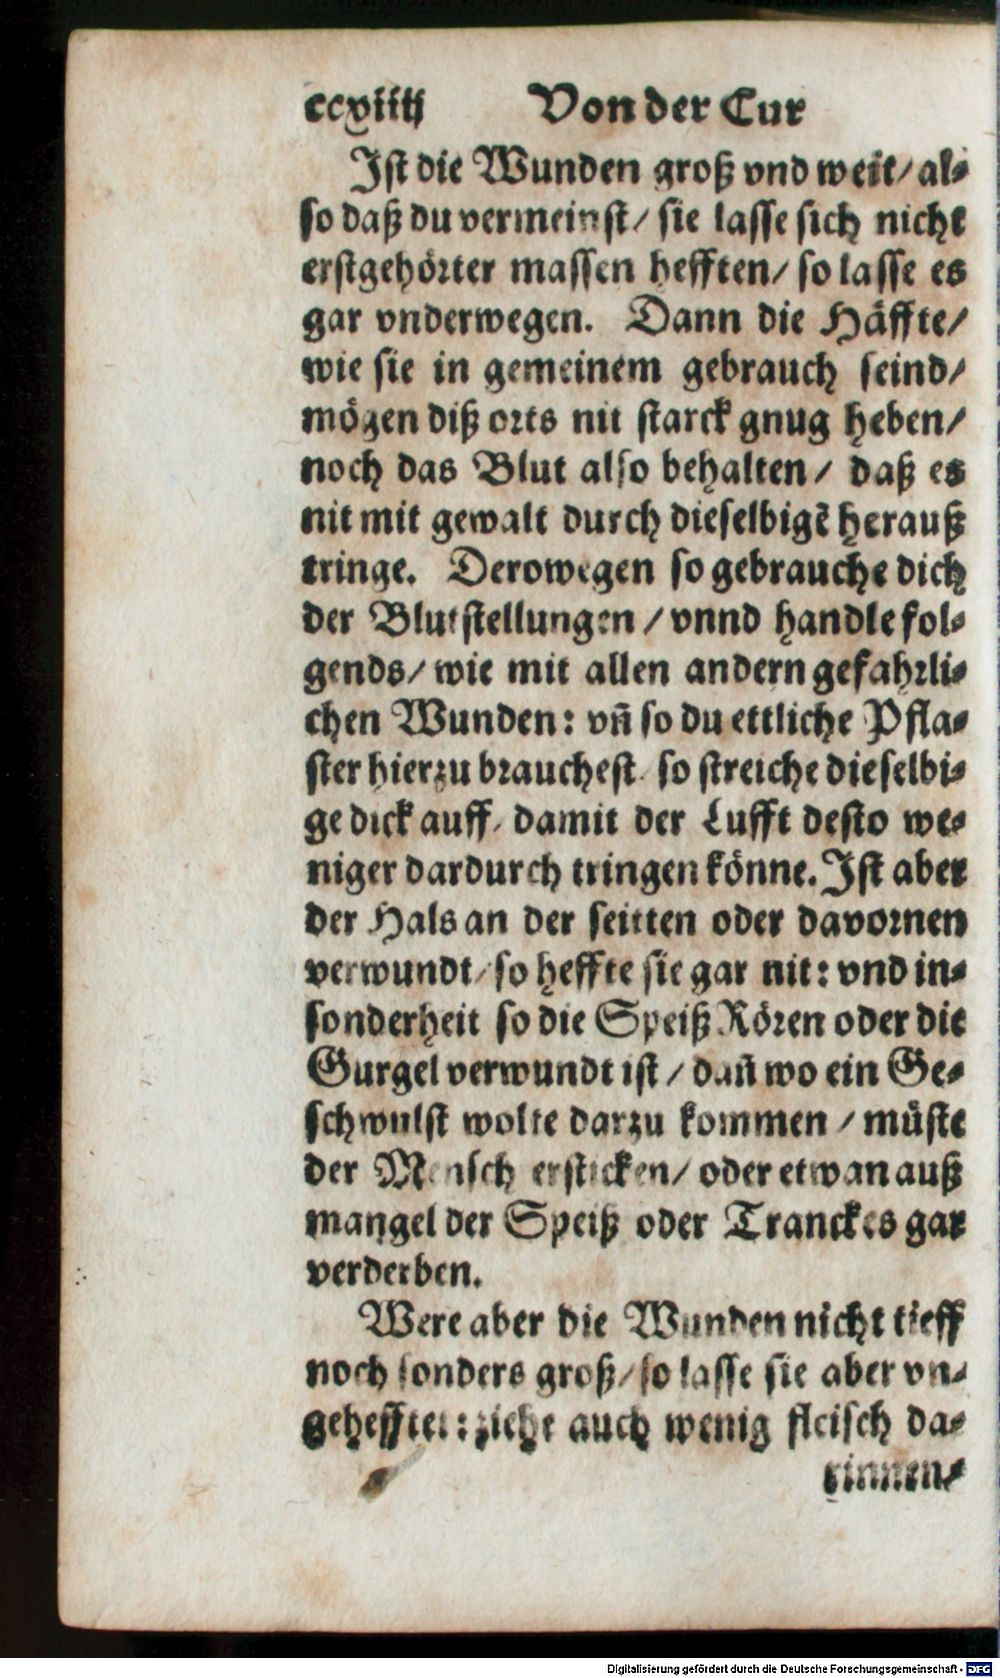 ccxiiij Von der Cur
Ist die Wunden groß vnd weit/ al-
so daß du vermeinst/ sie lasse sich nicht
erstgehörter massen hefften/ so lasse es
gar vnderwegen. Dann die Häffte/
wie sie in gemeinem gebrauch seind/
mögen diß orts nit starck gnug heben/
noch das Blut also behalten/ daß es
nit mit gewalt durch dieselbigẽ herauß
tringe. Derowegen so gebrauche dich
der Blutstellungen/ vnnd handle fol-
gends/ wie mit allen andern gefahrli-
chen Wunden: vñ so du ettliche Pfla-
ster hierzu brauchest/ so streiche dieselbi-
ge dick auff/ damit der Lufft desto we-
niger dardurch tringen könne. Ist aber
der Hals an der seitten oder davornen
verwundt/ so heffte sie gar nit: vnd in-
sonderheit so die Speiß Rören oder die
Gurgel verwundt ist/ dañ wo ein Ge-
schwulst wolte darzu kommen/ müste
der Mensch ersticken/ oder etwan auß
mangel der Speiß oder Tranckes gar
verderben.
Were aber die Wunden nicht tieff
noch sonders groß/ so lasse sie aber vn-
gehefftet: ziehe auch wenig fleisch da-
rinnen/
Digitalisierung gefördert durch die Deutsche Forschungsgemeinschaft - DFG